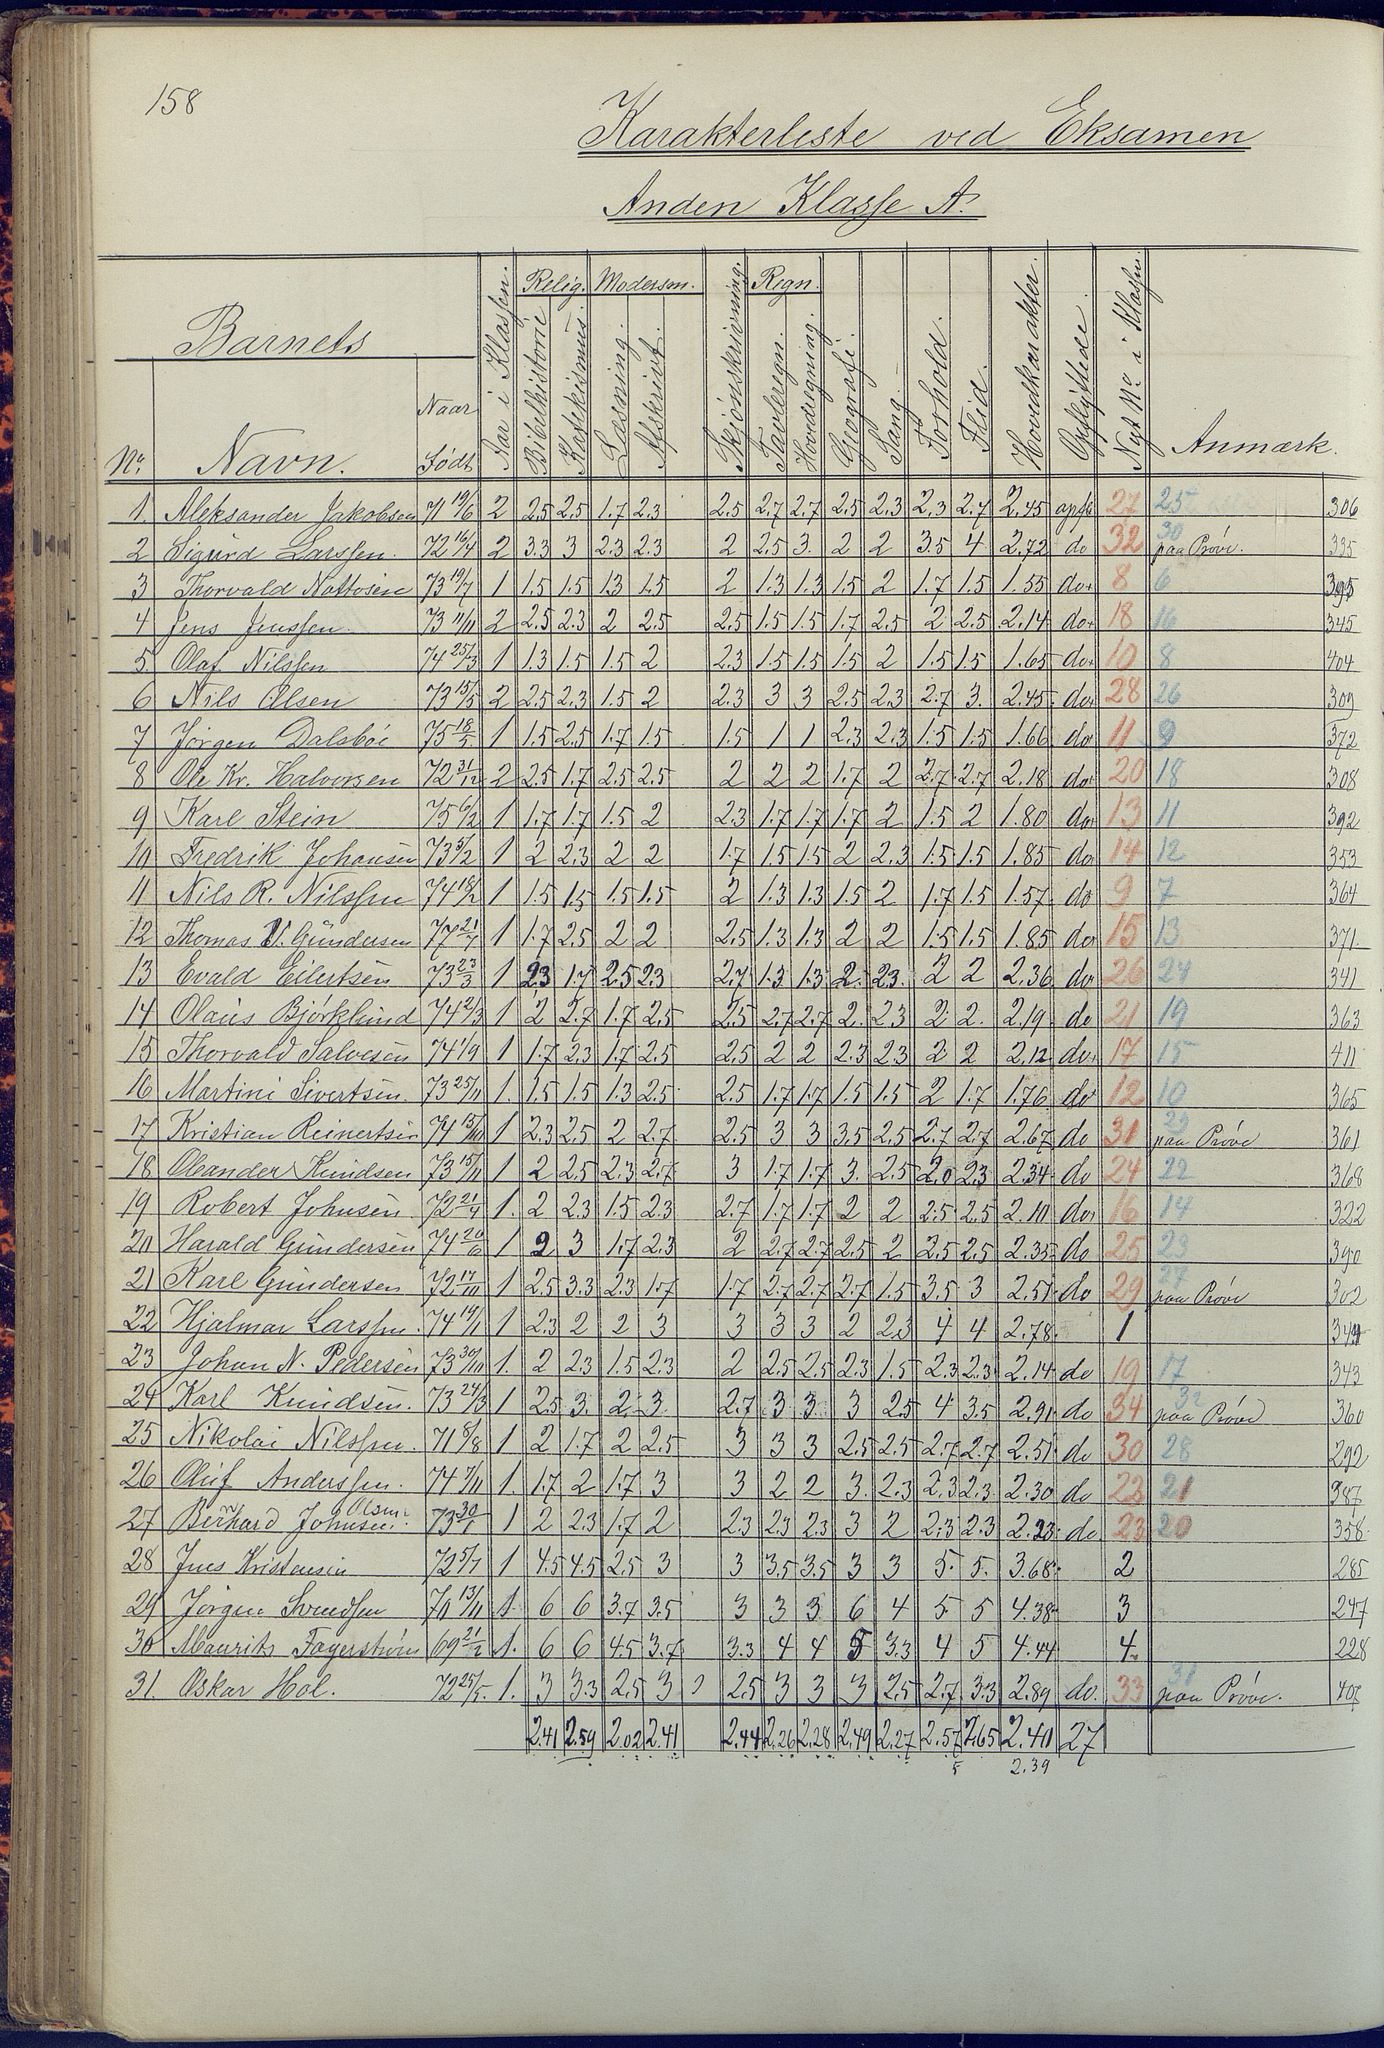 158
Karakterliste ved Eksamen
Anden Klasse A.
Barnets
Relig. Modersm. Regn.
No. Navn. Naar Født Aar i Klassen. Bibelhistorie Katekismus. Læsning. Afskrivt. Skjønskrivning. Tavleregn. Hovedregning. Geografi. Sang Forhold. Flid. Hovedkarakter. Opflyttede. Nyt No i Klassen. Anmærk.
1. Aleksander Jakobsen 71 19/6 2 2.5 2.5 1.7 2.3 2.5 2.7 2.7 2.5 2.3 2.3 2.7 2.45 opfl 27 25 306
2 Sigurd Larssen. 72 16/4 2 3.3 3 2.3 2.3 2 2.5 3. 2 2 3.5 4 2.72 do 32 30 paa Prøve. 335
3 Thorvald Nottosen 73 19/7 1 1.5 1.5 1.3 1.5 2 1.3 1.3 1.5 2 1.7 1.5 1.55 do 8 6 395
4 Jens Jenssen. 73 11/11 2 2.5 2.3 2 2.5 2.5 1.5 1.5 1.7 2.5 2 2.5 2.14 do 18 16 345
5. Olaf Nilssen 74 25/3 1 1.3 1.5 1.5 2 2.3 1.5 1.5 1.5 2 1.5 1.5 1.65 do 10 8 404
6 Nils Olsen 73 15/5 2 2.5 2.3 1.5 2 2.3 3 3 2.5 2.3 2.7 3. 2.45 do 28 26 309
7 Jørgen Dalsbøe 75 18/5 1 1.5 2.5 1.7 1.5 1.5 1 1 2.3 2.3 1.5 1.5 1.66 do 11 9 372
8 Ole Kr. Halvorsen 72 31/12 2 2.5 1.7 2.5 2.5 2 2 2 1.7 2 2.7 2.7 2.18 do 20 18 308
9 Karl Stein 75 6/2 1 1.7 1.7 1.5 2 2.3 1.7 1.7 1.7 2 1.5 2 1.80 do 13 11 392
10 Fredrik Johansen 73 5/2 1 2 2.3 2 2 1.7 1.5 1.5 2 2.3 1.5 1.5 1.85 do 14 12 353
11 Nils R. Nilssen 74 18/2 1 1.5 1.5 1.5 1.5 2 1.3 1.3 1.5 2 1.7 1.5 1.57 do 9 7 364
12 Thomas V. Gundersen 77 21/7 1 1.7 2.5 2 2 2.5 1.3 1.3 2 2 1.5 1.5 1.85 do 15 13 371.
13 Evald Eilertsen 73 23/3 1 2.3 1.7 2.5 2.3 2.7 1.3 1.3 2. 2.3. 2 2 2.36 do 26 24 341
14 Olaus Bjørklund 74 2/3 1 2 2.7 1.7 2.5 2.5 2.7 2.7 2. 2.3 2 2. 2.19 do 21 19 363
15 Thorvald Salvesen 74 1/9 1 1.7 2.3 1.7 2.5 2.5 2 2 2.3 2.3 2 2 2.12 do 17 15 411
16 Martini Sivertsen. 73 25/11 1. 1.5 1.5 1.3 2.5 2.5 1.7 1.7 1.5 1.5 2 1.7 1.76 do 12 10 365
17 Kristian Reinertsen 74 15/10 1. 2.3 2.5 2 2.7 2.5 3 3 3.5 2.5 2.7 2.7 2.67 do 31 29 paa Prøve 361
18 Oleander Knudsen 73 15/11 1 2 2.5 2.3 2.7 3 1.7 1.7 3. 2.5 2.0 2.3 2.34 do 24 22 368
19 Robert Johnsen 72 21/4 1. 2 2.3 1.5 2.3 2.7 1.7 1.7 2 2 2.5 2.5 2.10 do 16 14 322
20 Harald Gundersen 74 20/6 1 2 3 1.7 2.3 2 2.7 2.7 2.5 2 2.5 2.5 2.35 do 25 23 390
21 Karl Gundersen 72 17/10 1 2.5 3.3 2.3 1.7 1.7 2.7 2.7 2.7 1.5 3.5 3 2.51 do 29 27 paa Prøve 302
22 Hjalmar Larssen. 74 19/1 1 2.3 2 2 3 3 3 3 2 2.3 4 4 2.78. 1
23 Johan N. Pedersen 73 30/10 1. 2 2.3 1.5 2.3 2 2.5 2.5 2.3 1.5 2.3 2.3 2.14 do 19 17 343
24 Karl Knudsen. 73 24/3 1 2.5 3. 2. 3. 2.7 3 3 3 2.5 4 3.5 2.91 do 34 32 paa Prøve 360
25 Nikolai Nilssen. 71 8/8 1 2 1.7 2 2.5 3 3 3 2.5 2.5 2.7 2.7 2.51 do 30 28 292
26 Oluf Anderssen. 74 7/11 1. 1.7 2 1.7 3 3 2 2 3. 2.3 2.3 2.3. 2.30 do 21 387
27 Bernhard Johnsen. Olsen 73 30/1 1 2 2.3 1.7 2 2.3 2.3 2.3 3 2 2.3 2.3 2.23 do. 23 20 358
28 Jens Kristensen 72 5/7 1 4.5 4.5 2.5 3 3 3.5 3.5 3 3 5. 5. 3.68 2 285
29 Jørgen Svendsen 70 13/11 1. 6 6 3.7 3.5 3 3 3 6 4 5. 5 4.38 3 247
30 Mauritz Fagerstrøm 69 21/2 1. 6 6 4.5 3.7 3.3 4 4 5 3.3 4 5 4.44 4. 228
31. Oskar Hol. 72 25/5. 1. 3 3.3 2.5 3 2.5 3 3 3 2.5 2.7 3.3 2.89 do. 33 31 paa Prøve. 407
2.41 2.59 2.02 2.41 2.44 2.26 2.28 2.49 2.27 2.57 2.65 2.40 27
5 2.39